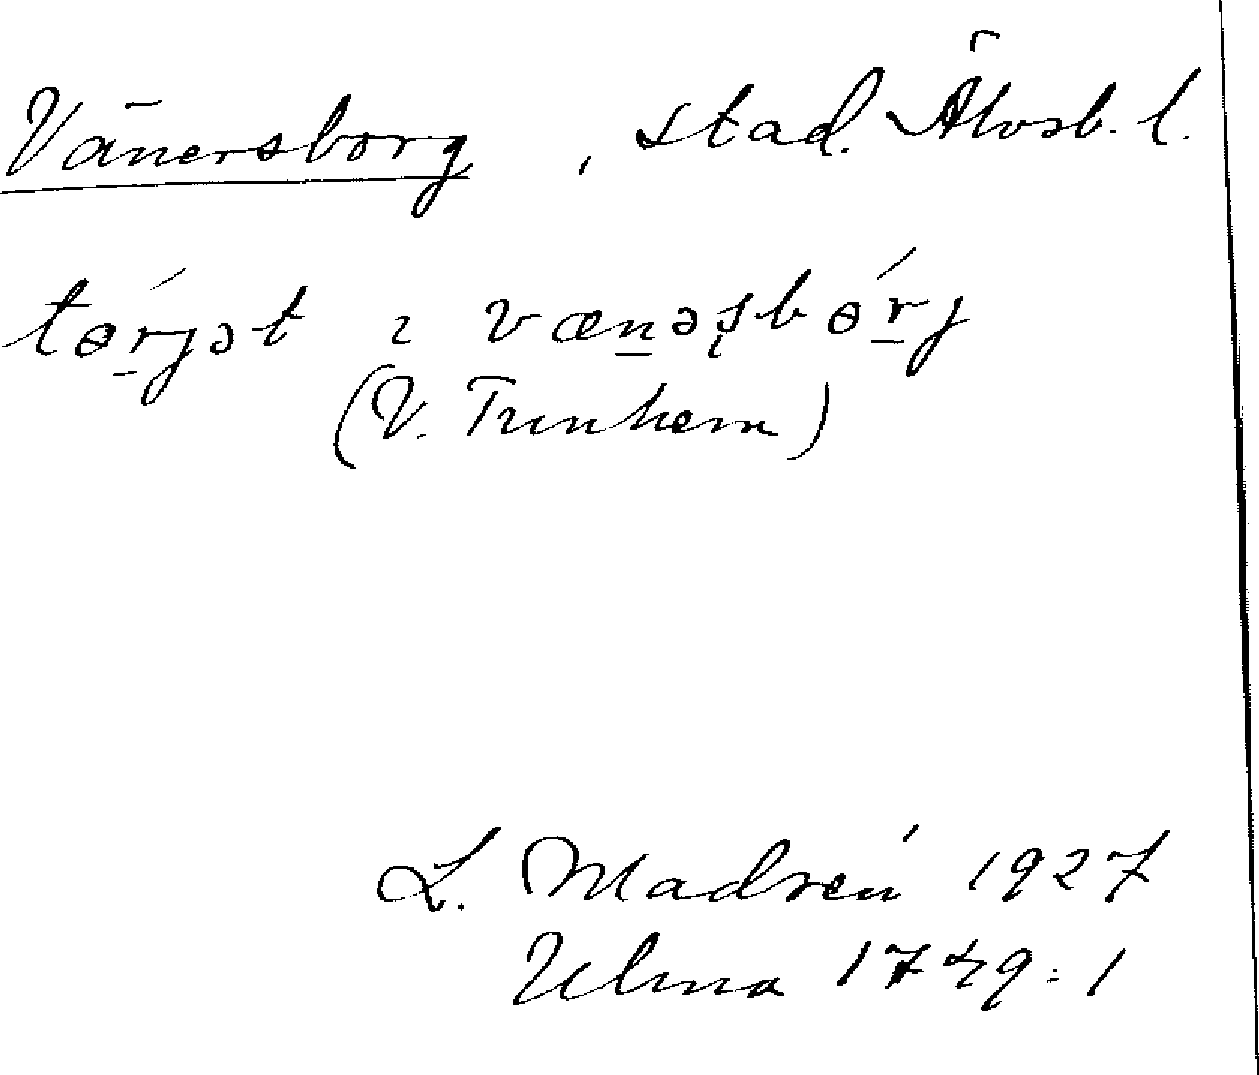 Vänersborg , stad. Älvsb. l.
tɵrjət ɩ vænəʂbɵ́rj
(V. Tunhem)
L. Madsén 1927
Ulma 1749:1